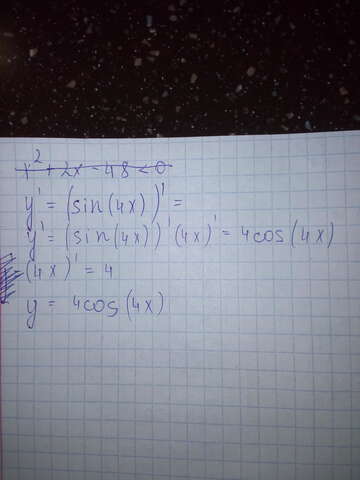 x² + 2x - 48 < 0
y' = (sin(4x))' =
y' = (sin(4x))'(4x)' = 4cos(4x)
(4x)' = 4
y = 4cos(4x)